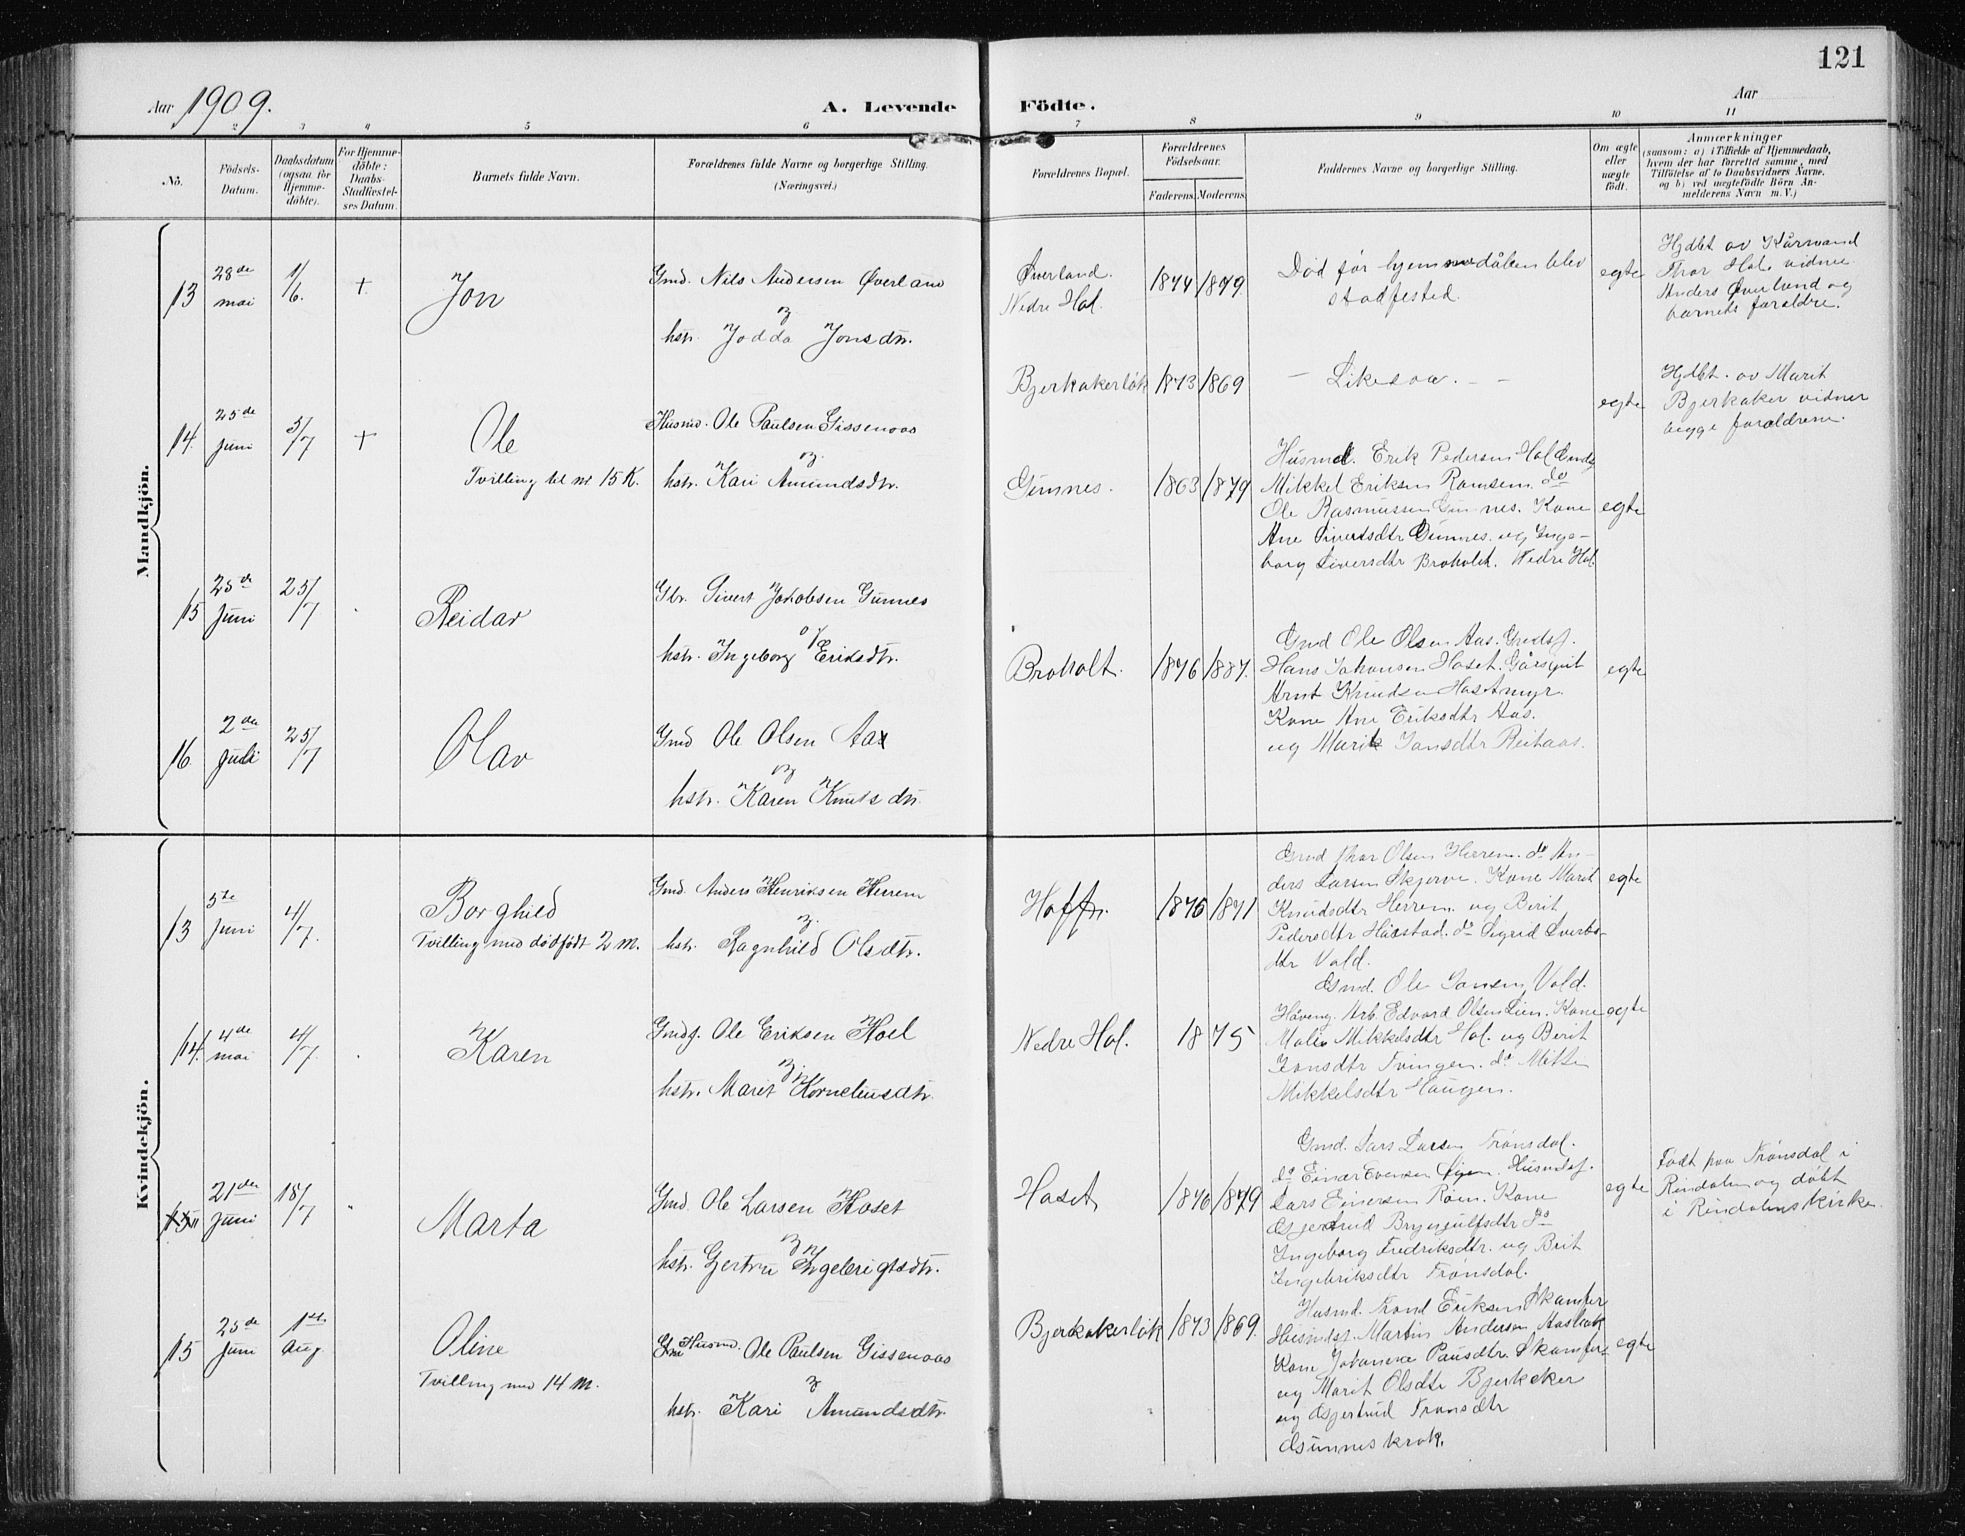 121
Aar 1909.
A. Levende Födte.
Aar
2 3 4 5 6 7 8 9 10 11
No.
Födsels-
Datum.
Daabsdatum
(ogsaa for
Hjemme-
döbte).
For Hjemme-
döbte:
Daabs-
Stadfæstel-
ses Datum.
Barnets fulde Navn.
Forældrenes fulde Navne og borgerlige Stilling.
(Næringsvei.)
Forældrenes Bopæl.
Forældrenes
Födselsaar.
Faderens. Moderens.
Faddernes Navne og borgerlige Stilling.
Om ægte
eller
uægte
født.
Anmærkninger
(saasom: a) i Tilfælde af Hjemmedaab,
hvem der har forrettet samme, med
Tilföielse af to Daabsvidners Navne.
og b) ved uægtefödte Börn An-
melderens Navn m. V.)
Mandkjön.
13
28de
mai
1/6.
+
Jon
Gmd. Nils Andersen Øverland
og
hstr. Jodda Jonsdtr.
Øverland.
Nedre Hol.
1874 1879
Død før hjemmedåben blev
stadfested.
egte
Hjdbt av Kårmand
Thor Hol. vidner
Anders Øverland og
barnets forældre.
14.
25de
Juni
5/7
+
Ole
Tvilling til nr 15 K.
Husmd. Ole Paulsen Gissenaas
og
hstr. Kari Amundsdtr.
Bjerkakerløk
1873 1869
- Likesaa. - -
egte
Hjdbt. av Marit
Bjerkaker vidner
begge forældrene.
15
25de
Juni
25/7
Reidar
Gbr. Sivert Jakobsen Gunnes
og
hstr. Ingeborg Eriksdtr.
Gunnes.
1863 1879
Husmd. Erik Pedersen Hol
Mikkel Eriksen Romsem. do
Ole Rasmussen Gunnes. Kone
Ane Sivertsdtr Gunnes. og Inge-
borg Siversdtr Broholt. Nedre Hol.
egte
16
2den
Juli
25/7
Olav
Gmd Ole Olsen Aas
og
hstr. Karen Knutsdtr.
Broholt.
1876 1887.
Gmd Ole Olsen Aas. Gmdsf.
Hans Johansen Hoset. Gårsgut
Arnt Knudsen Hosetmyr.
Kone Ane Eriksdtr Aas.
og Marit Jonsdtr Reitaas.
egte
Kvindekjön.
13
5te
Juni
4/7.
Borghild
Tvilling med dødfødt 2 M.
Gmd. Anders Henriksen Herrem
og
hstr. Ragnhild Olsdtr.
Hoffn.
1876 1871
Gmd Thor Olsen Herrem. do An-
ders Larsen Skjerve. Kone Marit
Knudsdtr Herrem. og Berit
Pedersdtr Håestad. do Sigrid Sverts-
dtr Vold.
egte
14.
4de
mai
4/7.
Karen
Gmdsf. Ole Eriksen Hoel
og
hstr. Marit Korneliusdtr.
Nedre Hol.
1875
Gmd. Ole Jonsen Vold.
Håveng. Arb. Edvard Olsen Lien. Kone
Malie Mikkelsdtr Hol. og Berit
Jonsdtr Tvingen. do Mette
Mikkelsdtr Haugen.
egte
21de
Juni
18/7
Marta
Gmd. Ole Larsen Hoset
og
hstr. Gjertru Ingebrigtsdtr.
Hoset
1876 1879
Gmd. Lars Larsen Trønsdal.
do Einar Evensen Løsen. Husmdsf.
Lars Einersen Røen. Kone
Gjertrud Brynjulfsdtr do
Ingeborg Fredriksdtr. og Brit
Ingebriksdtr Trønsdal.
egte
Født paa Trønsdal i
Rindalen og døbt
i Rindalens kirke.
15
25de
Juni
1ste
Aug.
Oline
Tvilling med 14 M.
Husmd. Ole Paulsen Gissenaas
og
hstr. Kari Amundsdtr.
Bjerkakerløk
1873 1869.
Husmd. Trond Eriksen Skamfer
Husmdsf. Martin Andersen Aasbak
Kone Johanne Paulsdtr. Skamfer
og Marit Olsdtr Bjerkaker
og Gjertrud Tronsdtr
Gunneskrok.
egte